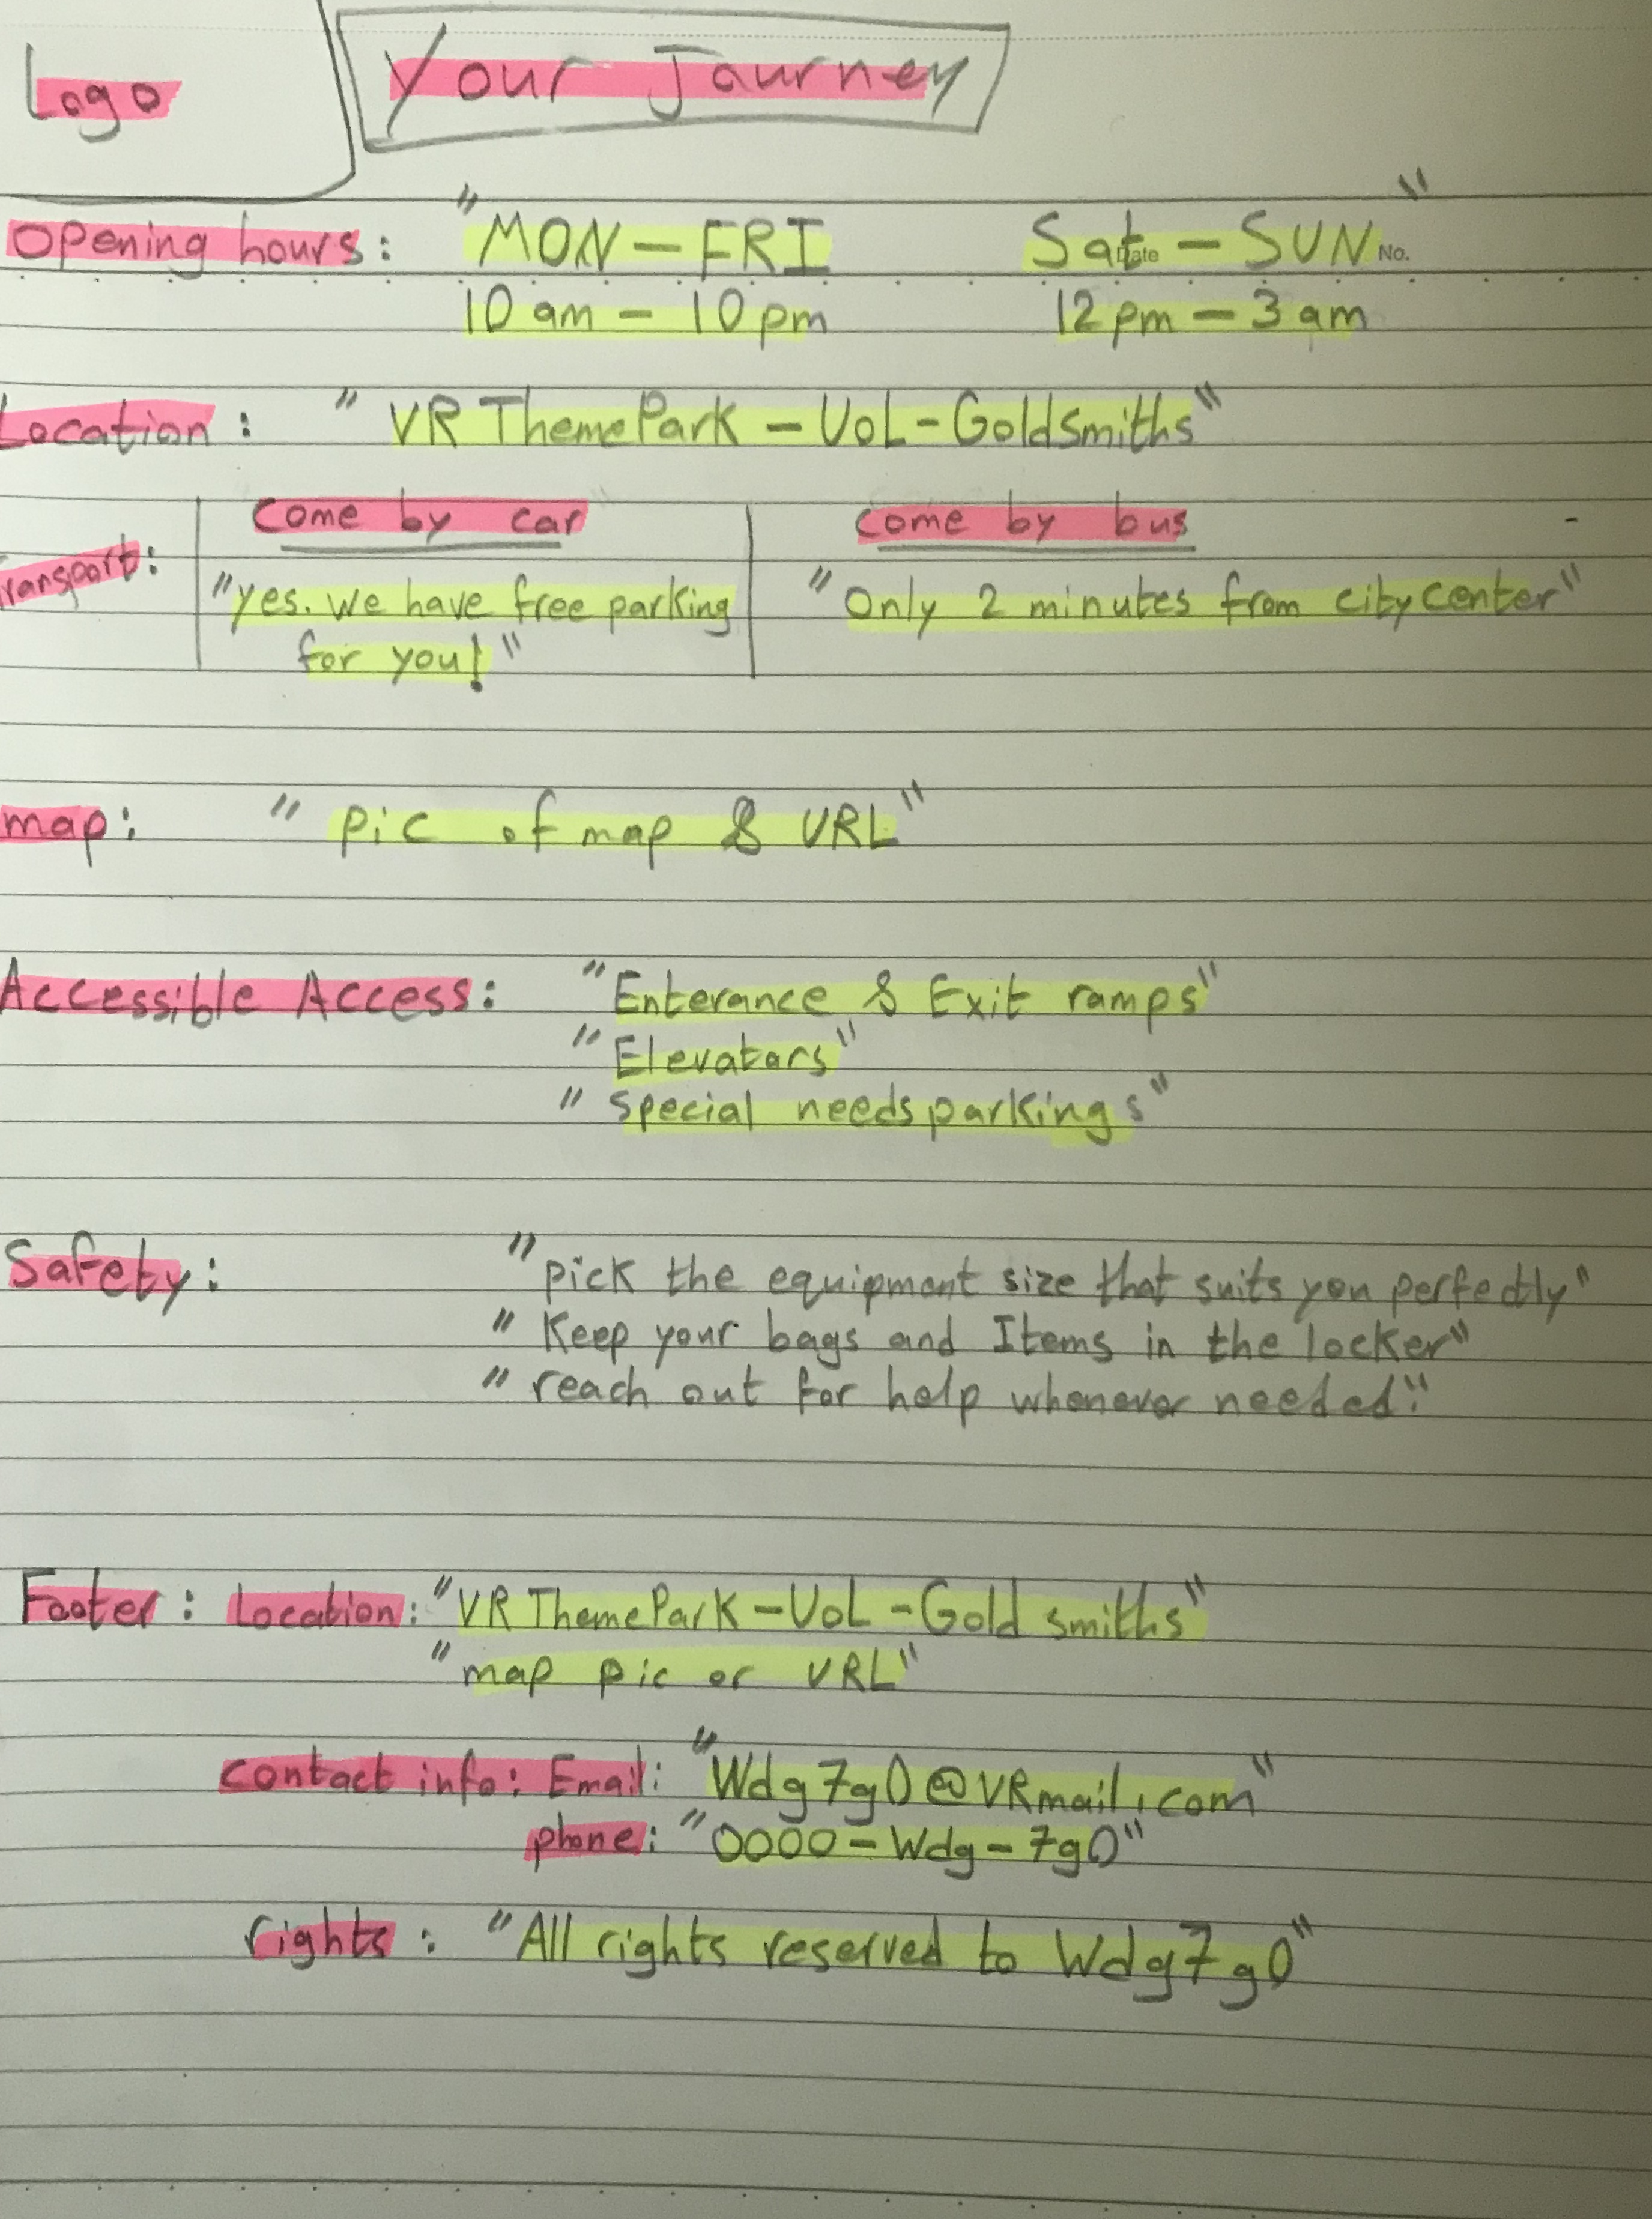 Logo
Your Journey
Opening hours: "MON - FRI Sat - SUN"
Date No.
10 am - 10 pm 12 pm - 3 am
Location: "VR ThemePark - UoL - Goldsmiths"
come by car come by bus
ransport: "yes. we have free parking "Only 2 minutes from city center"
for you!"
map: "pic of map & URL"
Accessible Access: "Enterance & Exit ramps"
"Elevators"
"special needs parkings"
Safety: "pick the equipment size that suits you perfectly"
"Keep your bags and Items in the locker"
"reach out for help whenever needed."
Footer: Location: "VR ThemePark - UoL - Gold smiths"
"map pic or URL"
contact info: Email: "Wdg7g0@VRmail.com"
phone: "0000 - Wdg - 7g0"
rights: "All rights reserved to Wdg7g0"